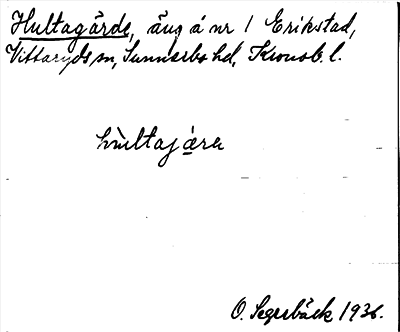 Hultagärde, äng å nr 1 Erikstad,
Vittaryds sn, Sunnerbo hd, Kronob. l.
hùltajära
O. Segerbäck 1936.